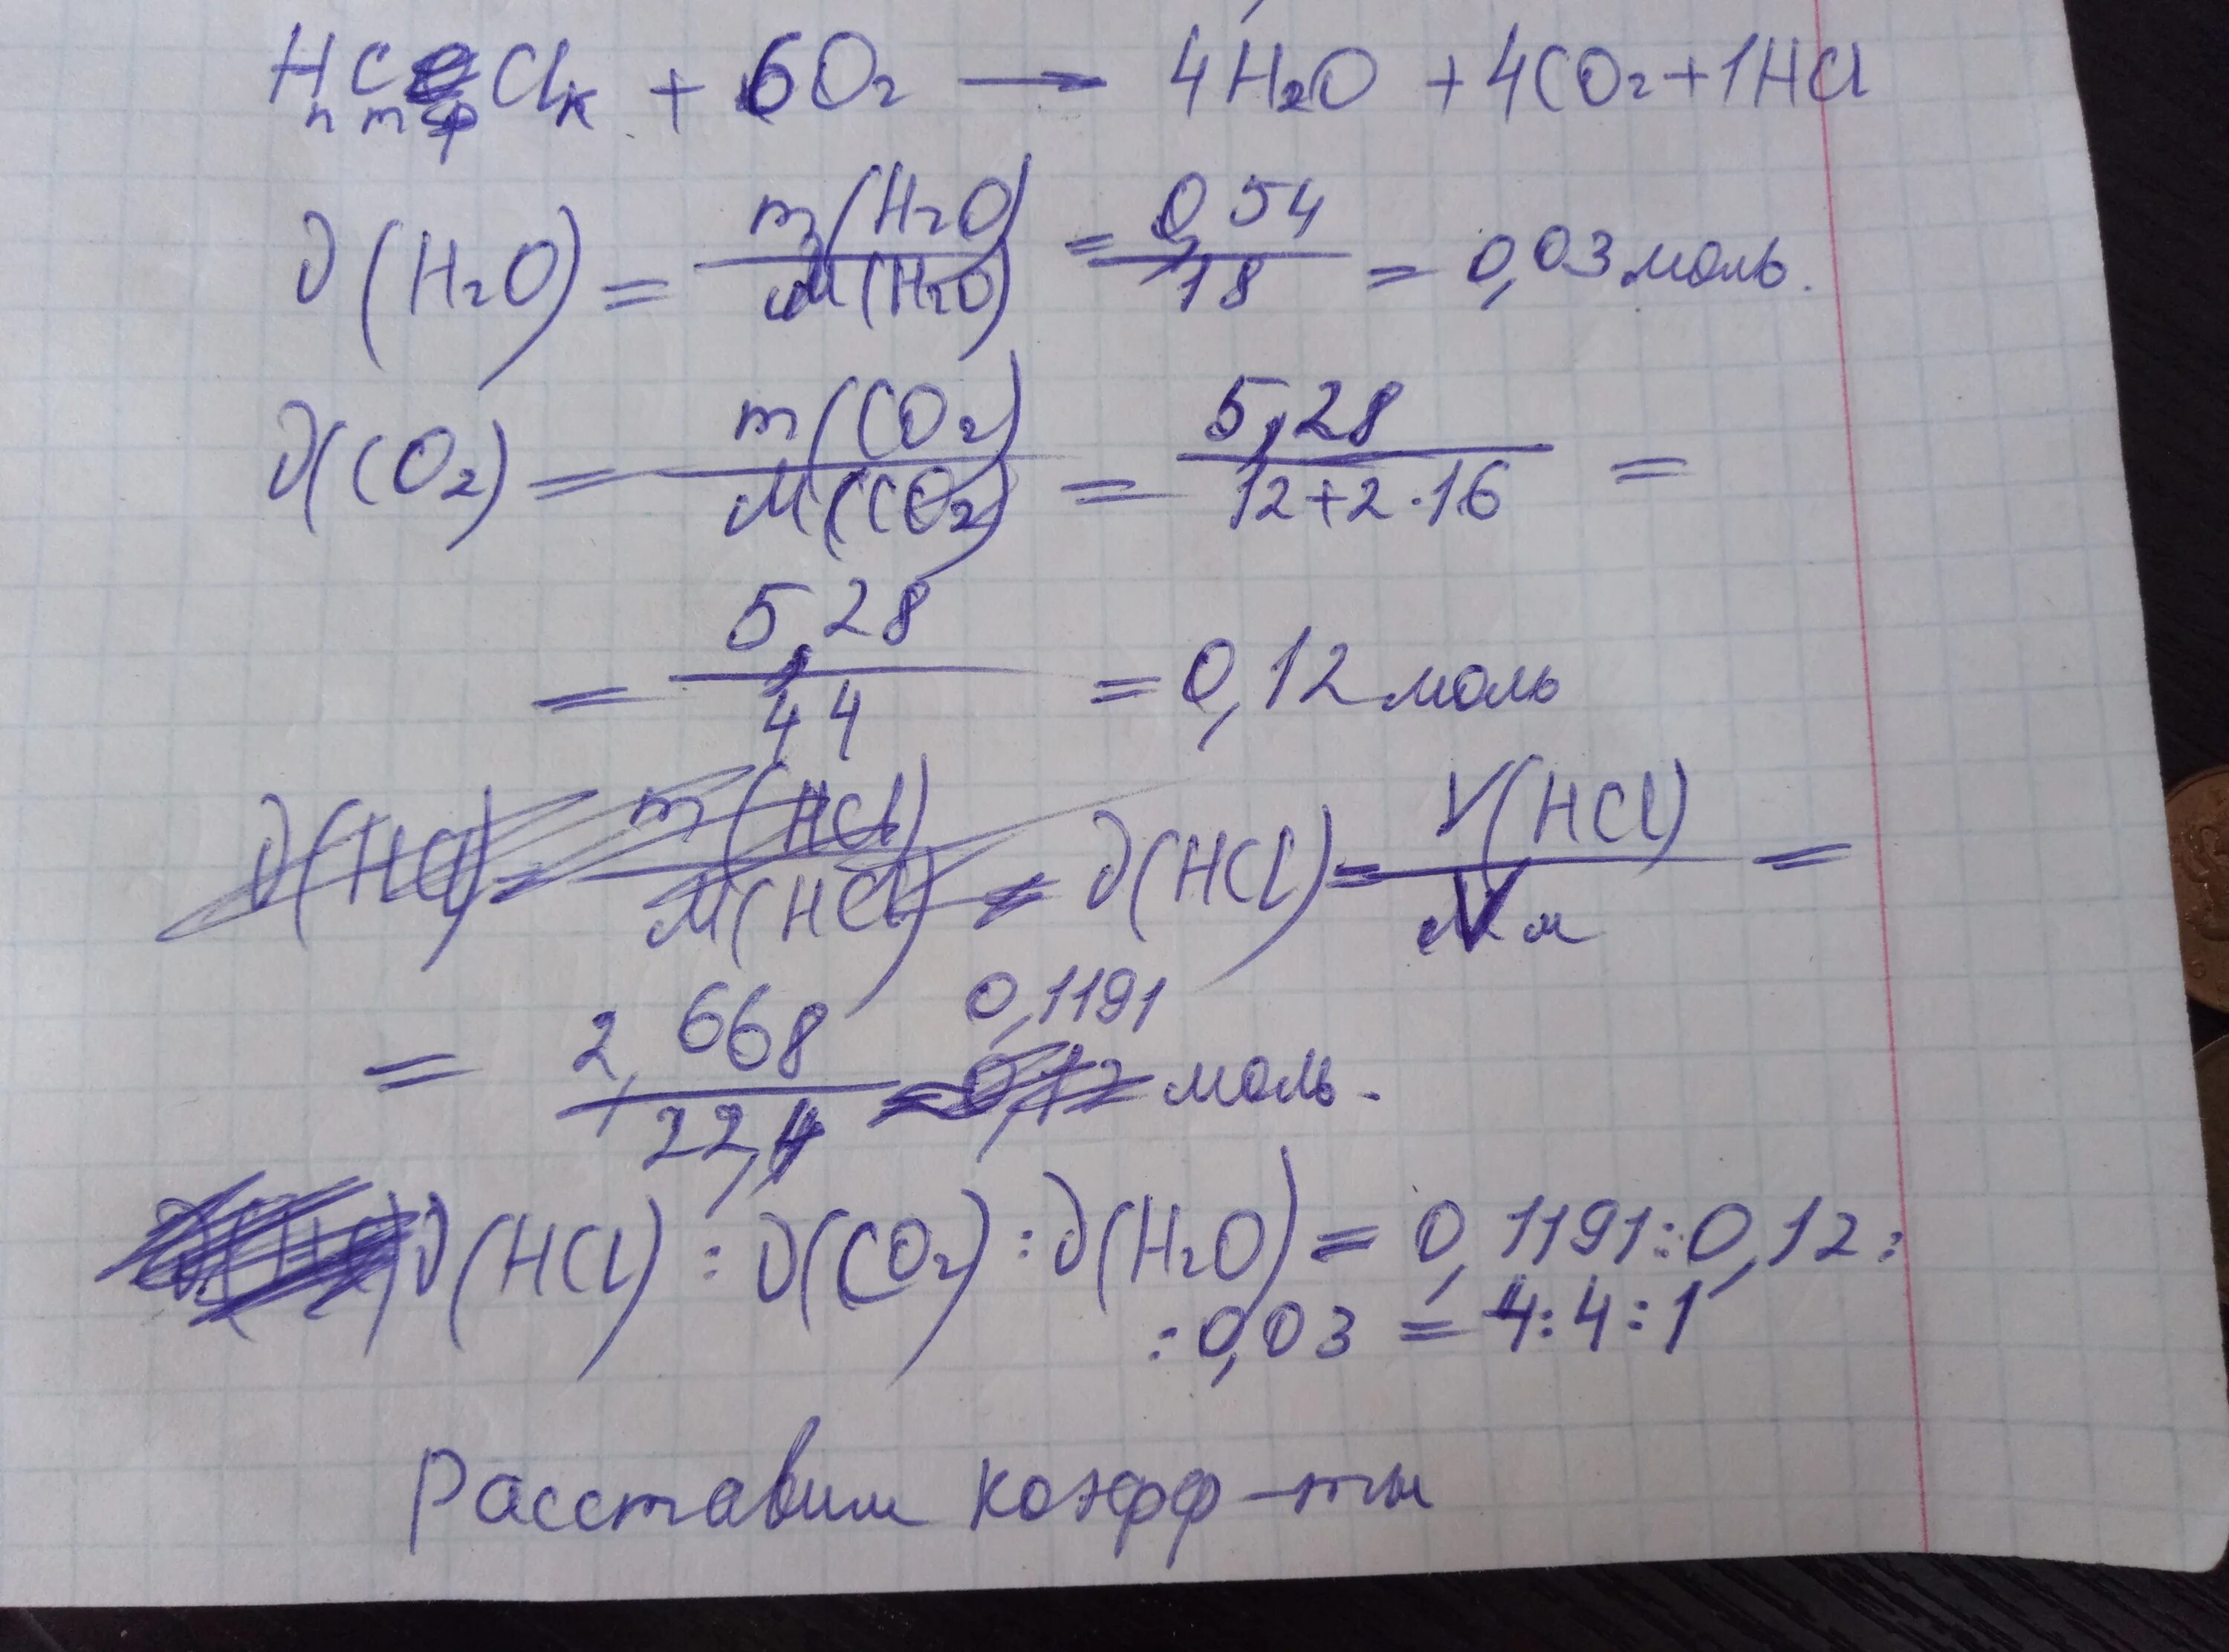 HnCmClк + 6O₂ → 4H₂O + 4CO₂ + 1HCl
ν(H₂O) = m(H₂O)/M(H₂O) = 0,54/18 = 0,03 моль.
ν(CO₂) = m(CO₂)/M(CO₂) = 5,28/12+2·16 =
= 5,28/44 = 0,12 моль
ν(HCl) = m(HCl)/M(HCl) = ν(HCl) = V(HCl)/Vм =
= 2,668/22,4 = 0,1191 моль.
ν(HCl) : ν(CO₂) : ν(H₂O) = 0,1191 : 0,12 :
: 0,03 = 4 : 4 : 1
Расставим коэфф-ты